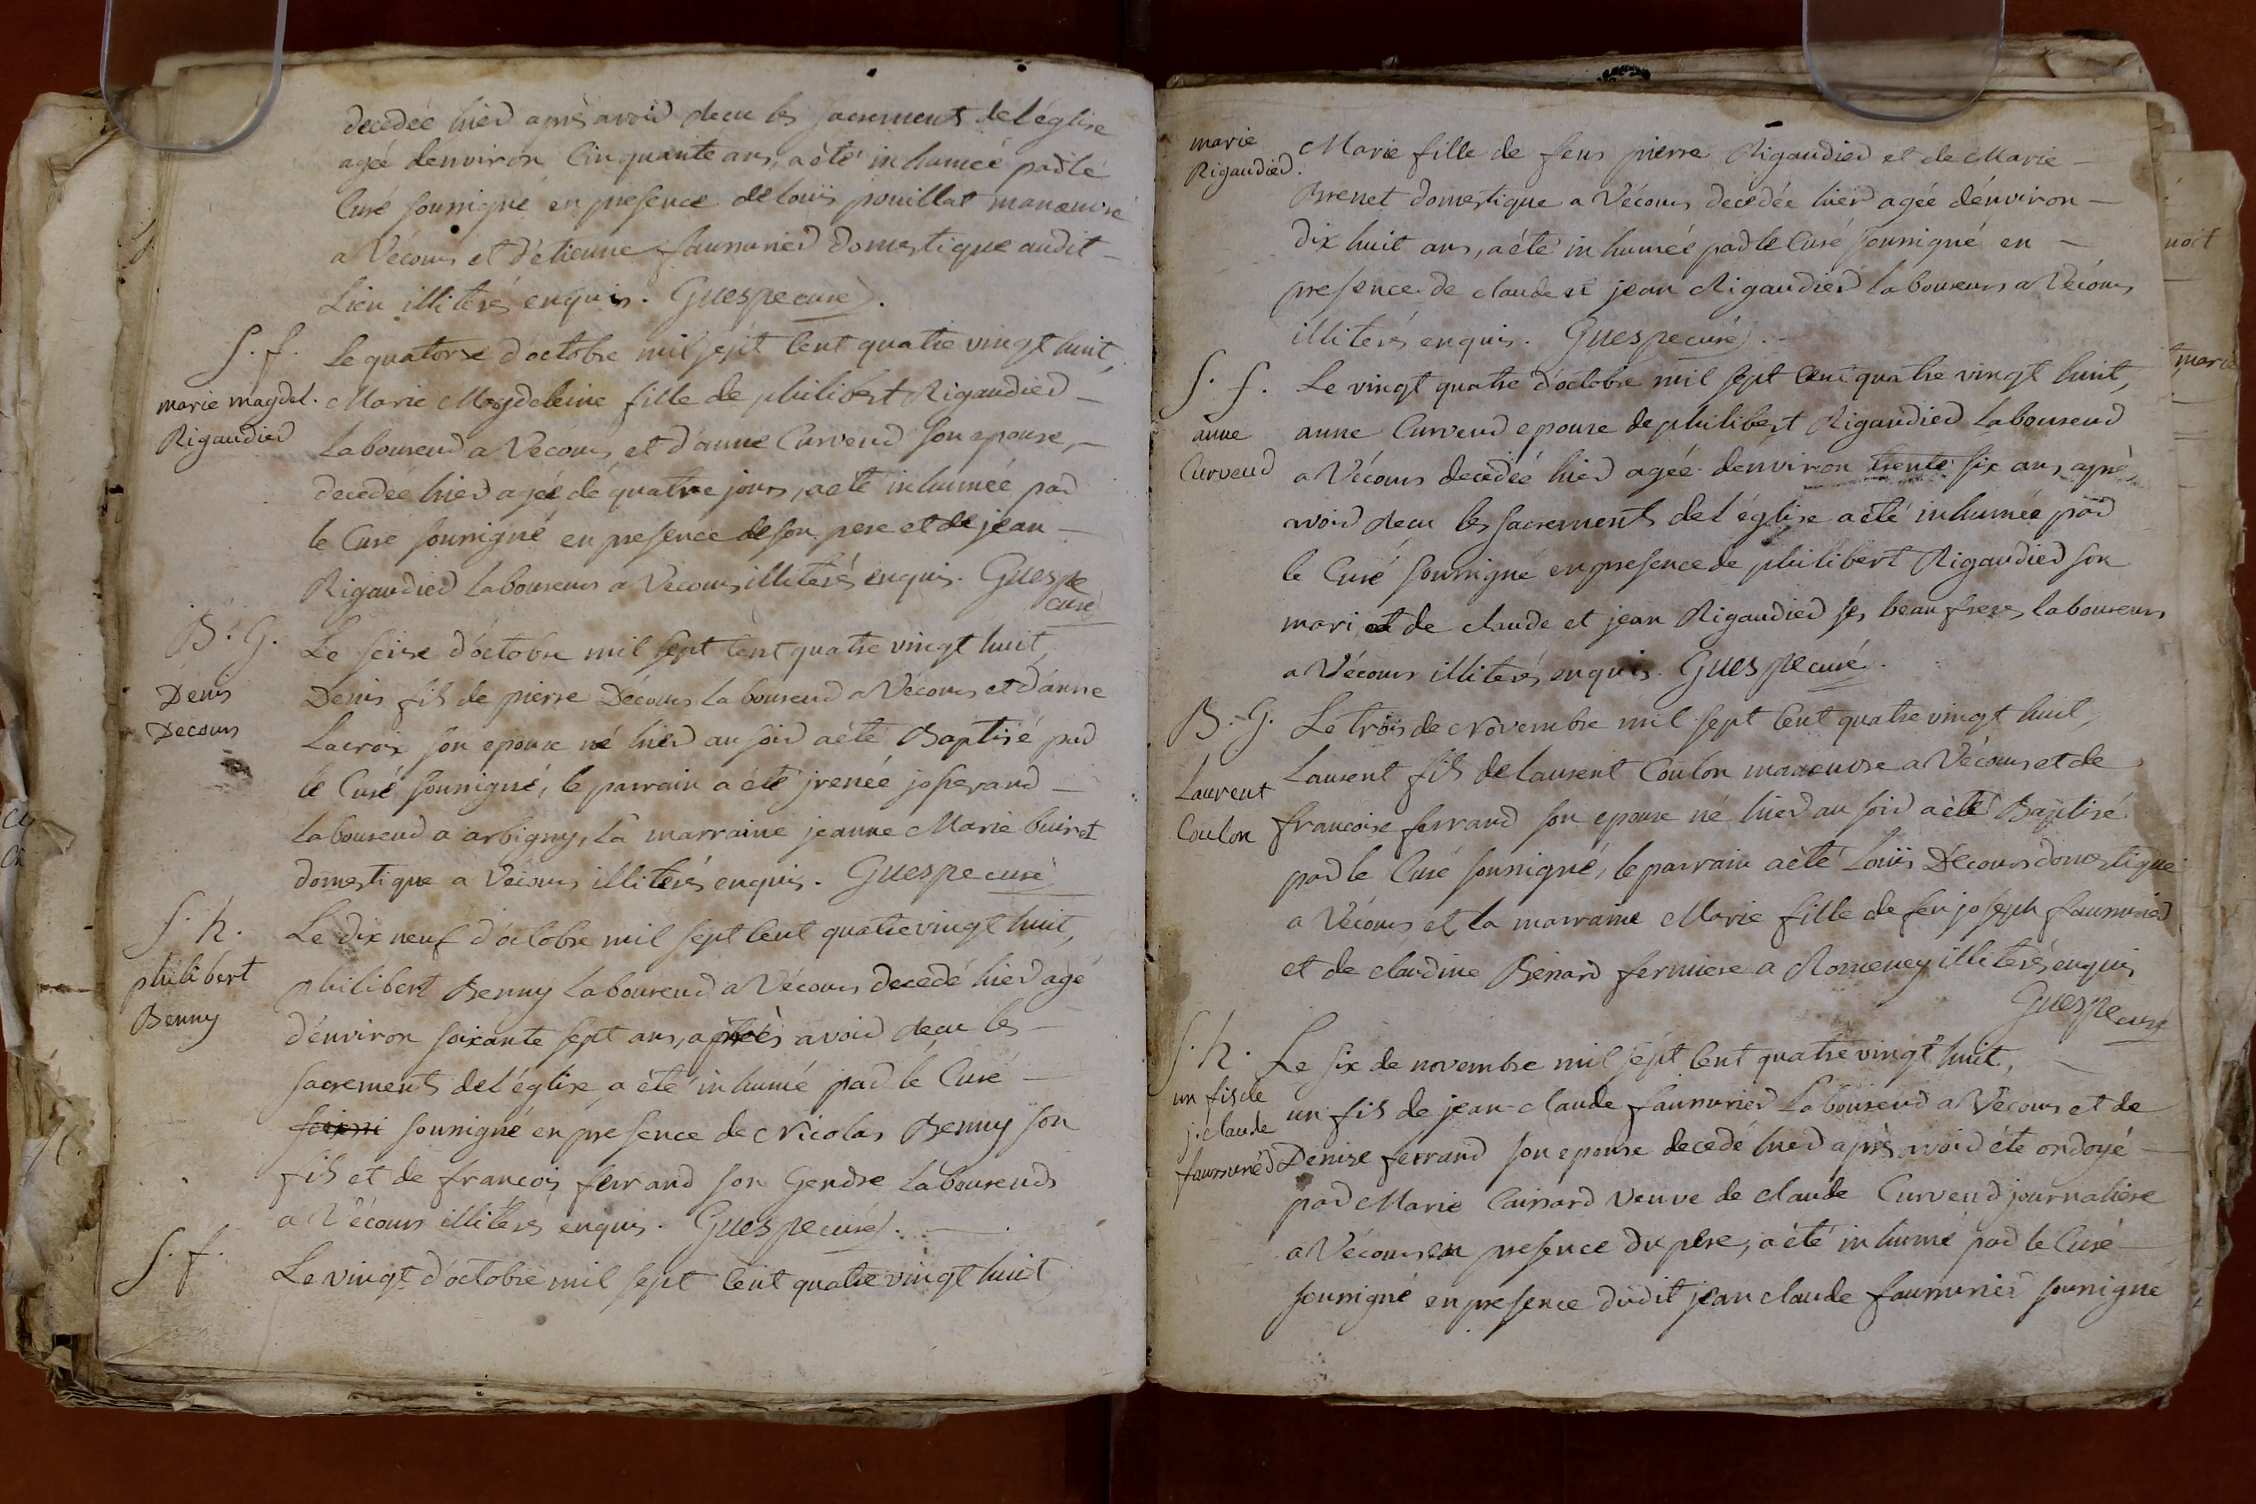 decedée hier après avoir recu les sacrements de l'église
agée denviron Cinquante ans, a été inhumée par le
Curé soussigné en presence de louis pouillat manœuvre
a Vécours et d'étienne faussurier domestique audit
Lieu illiterés enquis. Guespe curé.
S. f. Le quatorze d'octobre mil sept cent quatre vingt huit,
marie magdel. Marie Magdeleine fille de philibert Rigaudier
Rigaudier Laboureur a Vecours, et d'anne Curveur son epouse,
decedée hier agée de quatre jours, a été inhumée par
le Curé soussigné en presence de son pere et de jean
Rigaudier laboureurs a Vecours illiterés enquis. Guespe
curé
B. G. Le seize d'octobre mil sept cent quatre vingt huit,
Denis Denis fils de pierre Décours laboureur a Vécours et d'anne
Decours Lacroix son epouse né hier au soir a été Baptisé par
le Curé soussigné, le parrain a été jrenée josserand
laboureur a arbigny, la marraine jeanne Marie buiret
domestique a Vécours illiterés enquis. Guespe curé
S. h. Le dix neuf d'octobre mil sept cent quatre vingt huit,
philibert philibert Benny laboureur a Vécours decedé hier agé
Benny d'énviron soixante sept ans, après avoir recu les
sacrements de l'église, a été inhumé par le Curé
soussigné en presence de Nicolas Benny son
fils et de francois ferrand son Gendre Laboureurs
a Vécours illiterés enquis. Guespe curé.
S. f. Le vingt d'octobre mil sept cent quatre vingt huit
marie Marie fille de feus pierre Rigaudier et de Marie
Rigaudier. Brenet domestique a Vécours decedée hier agée d'énviron
dix huit ans, a été inhumée par le Curé soussigné en
presence de claude et jean Rigaudier laboureurs a Vécours
illiterés enquis. Guespe curé.
S. f. Le vingt quatre d'octobre mil sept cent quatre vingt huit,
anne anne Curveur epouse de philibert Rigaudier laboureur
Curveur a Vécours decedée hier agée denviron trente six ans, après
avoir recu les sacrements de l'église a été inhumée par
le Curé soussigné en presence de philibert Rigaudier son
mari et de claude et jean Rigaudier ses beaufreres, laboureurs
a Vécours illiterés enquis. Guespe curé.
B. G. Le trois de Novembre mil sept cent quatre vingt huit,
Laurent Laurent fils de laurent Coulon manœuvre a Vécours et de
Coulon francoise ferrand son epouse né hier au soir a été Baptisé
par le Curé soussigné, le parrain a été Louis Décours domestique
a Vécours et la marraine Marie fille de feu joseph faussurier
et de claudine Bénard fermiere a Romeney illiterés enquis
Guespe curé
S. h. Le six de novembre mil sept cent quatre vingt huit,
un fis de un fils de jean-claude faussurier Laboureur a Vécours et de
j. claude Denise ferrand son epouse decedé hier après avoir été ondoyé
faussurier par Marie Cuissard veuve de claude Curveur journaliere
a Vécours en presence du pere, a été inhumé par le Curé
soussigné en presence dudit jean claude faussurier soussigné